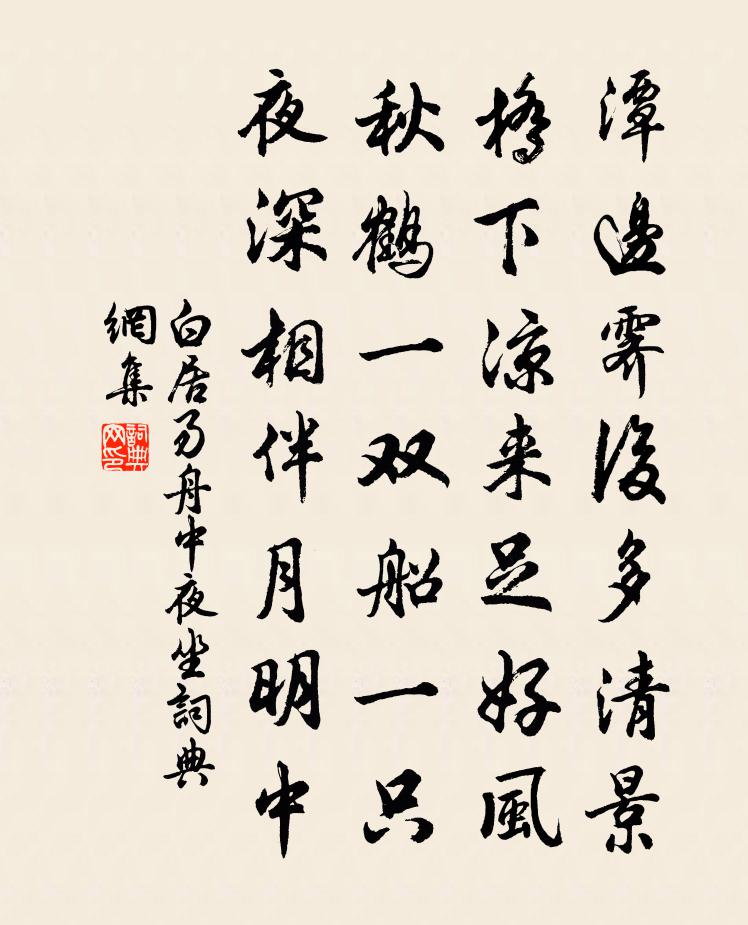 潭邊霽後多清景
橋下凉来足好風
秋鶴一双船一只
夜深相伴月明中
白居易舟中夜坐詞典
網集
詞典
网印